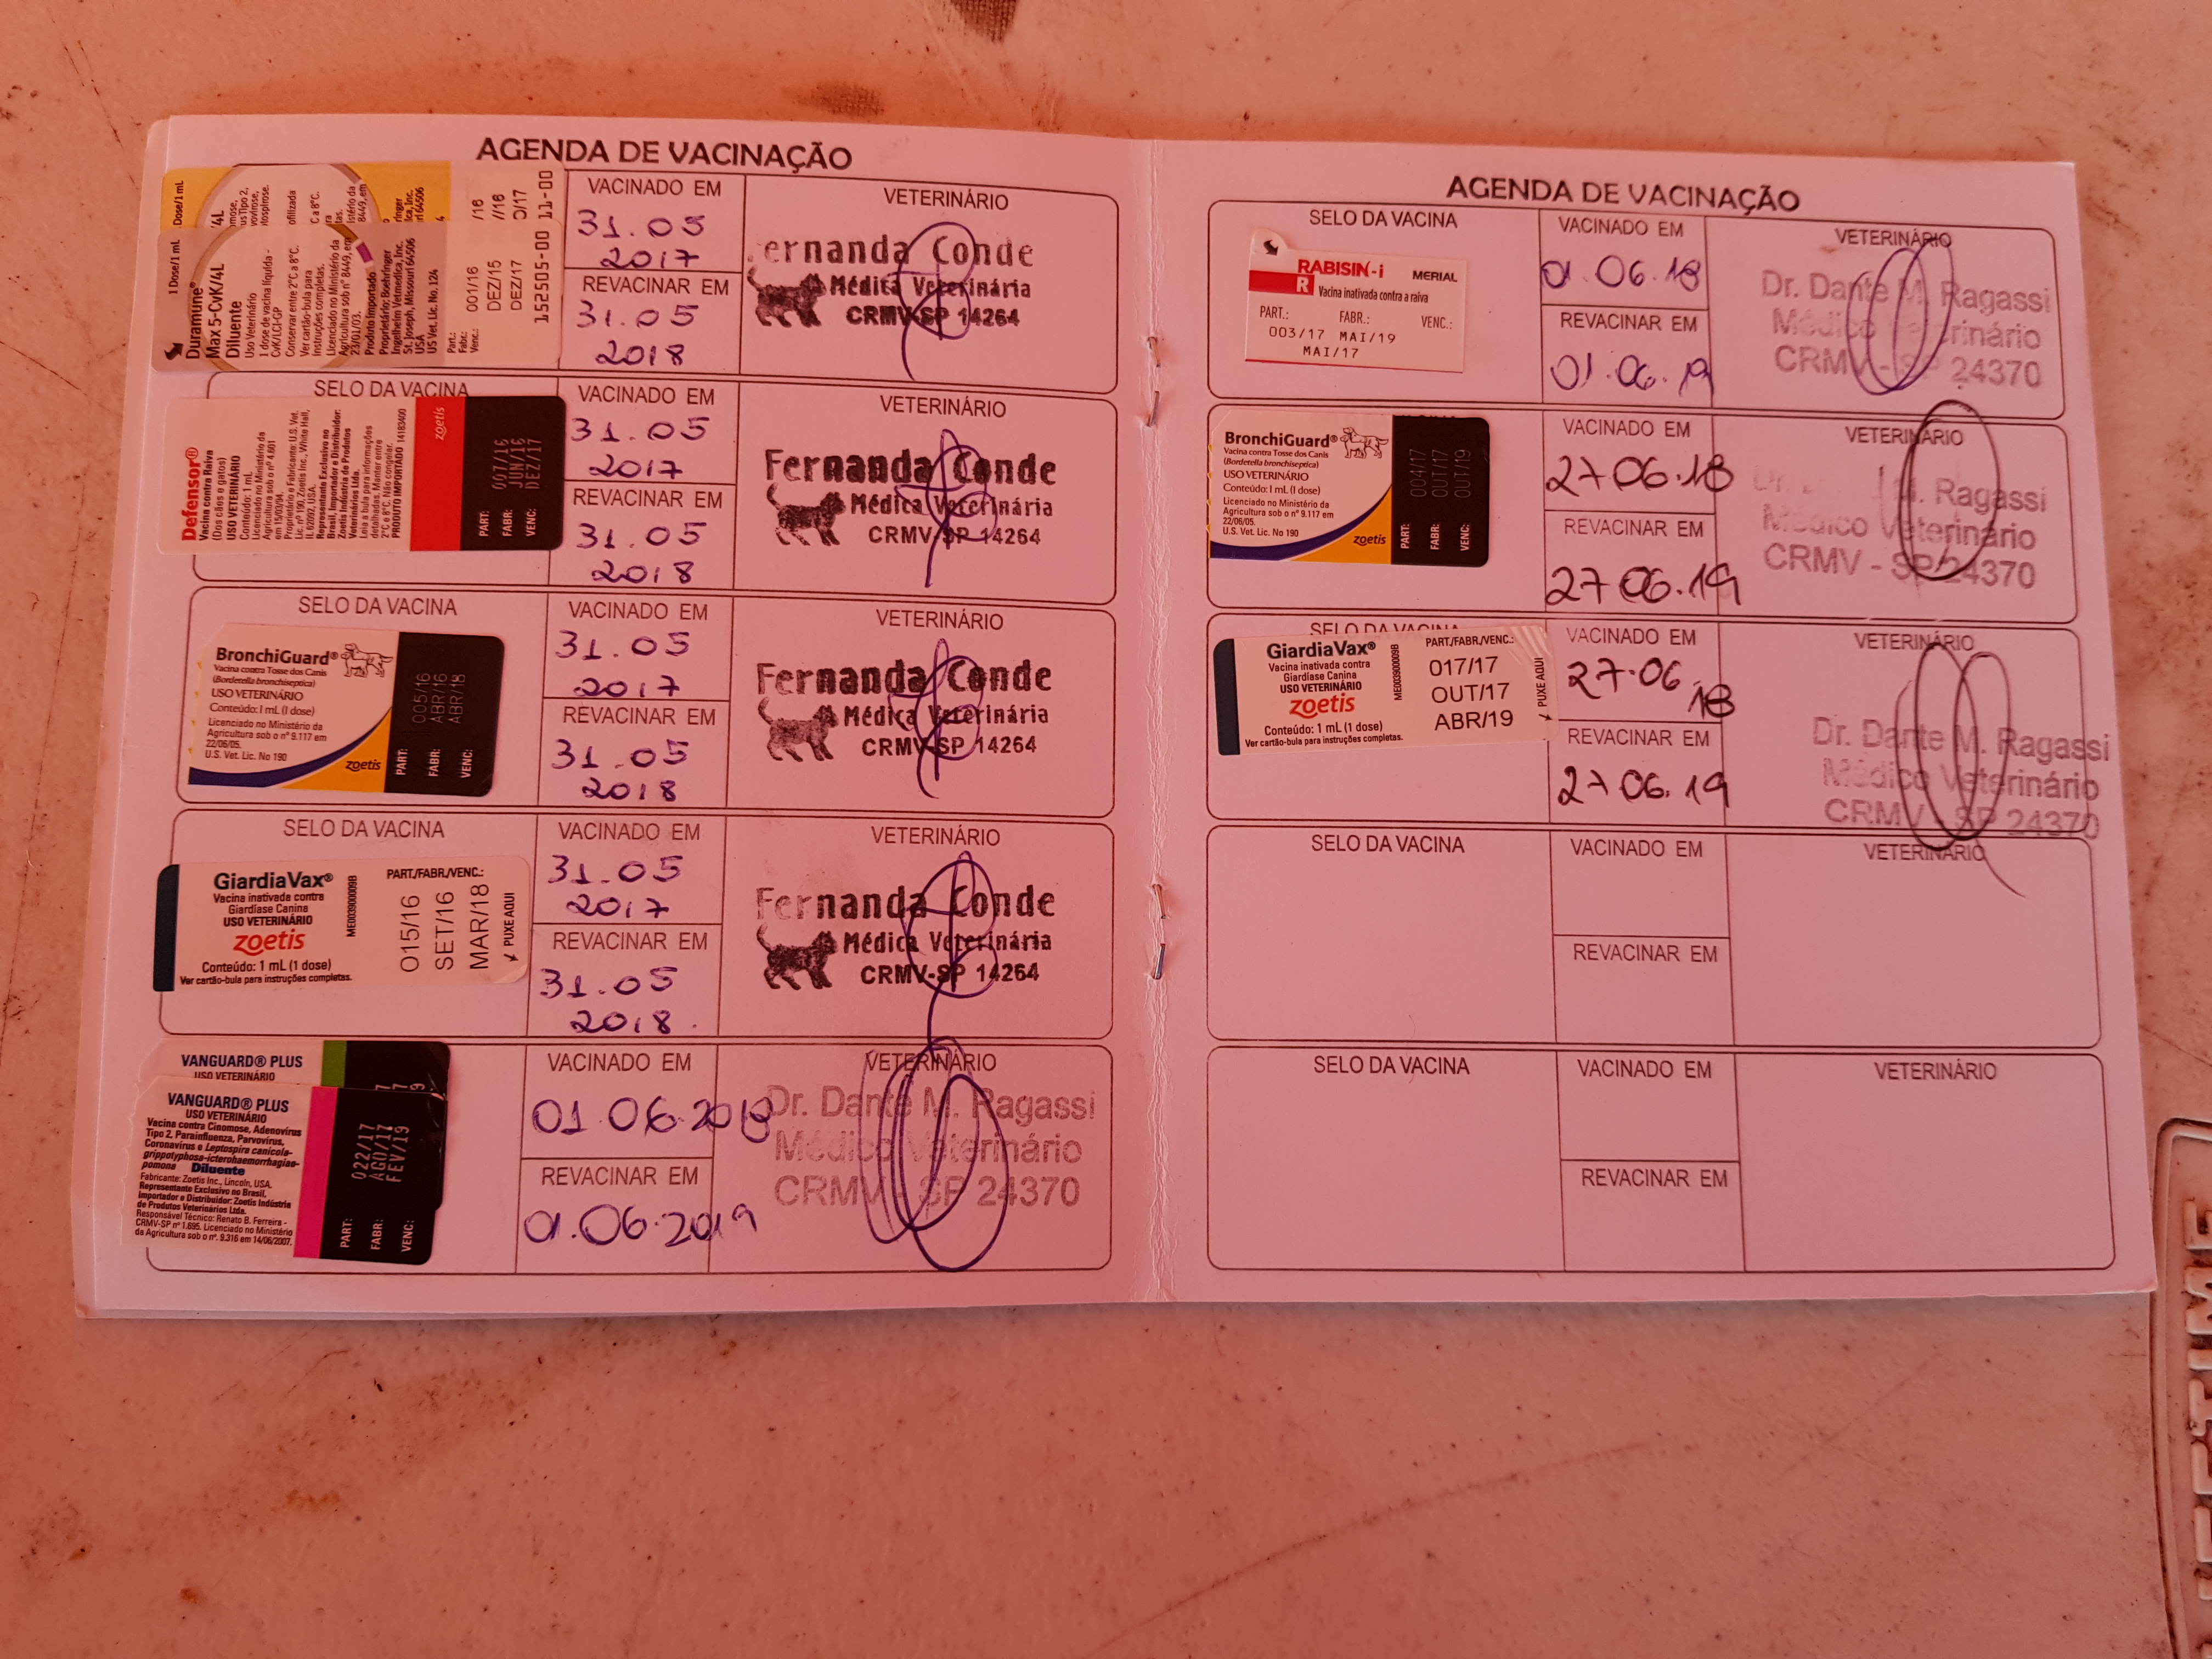 AGENDA DE VACINAÇÃO
1 Dose/1 mL
Duramune®
Max 5-CvK/4L
Diluente
Uso Veterinário
1 dose de vacina líquida -
CvK/LCI-GP
Conservar entre 2°C a 8°C.
Ver cartão-bula para
instruções completas.
Licenciado no Ministério da
Agricultura sob nº 8449, em
23/01/03.
Produto Importado
Proprietário: Boehringer
Ingelheim Vetmedica, Inc.
St. Joseph, Missouri 64506
USA
US Vet. Lic. No. 124
Part.: 001/16
Fabr.: DEZ/15
Venc.: DEZ/17
152505-00 11-00
VACINADO EM
31.05
2017
REVACINAR EM
31.05
2018
VETERINÁRIO
ernanda Conde
Médica Veterinária
CRMV-SP 14264
SELO DA VACINA
Defensor®
Vacina contra Raiva
(Dos cães e gatos)
USO VETERINÁRIO
Conteúdo: 1 mL
Licenciado no Ministério da
Agricultura sob o nº 4.601
em 15/03/94.
Proprietário e Fabricante: U.S. Vet.
Lic. nº 190, Zoetis Inc., White Hall,
IL 62092, USA.
Representante Exclusivo no
Brasil, Importador e Distribuidor:
Zoetis Indústria de Produtos
Veterinários Ltda.
Leia a bula para informações
detalhadas. Manter entre
2°C e 8°C. Não congelar.
PRODUTO IMPORTADO 14183400
zoetis
PART: 007/16
FABR: JUN/16
VENC: DEZ/17
VACINADO EM
31.05
2017
REVACINAR EM
31.05
2018
VETERINÁRIO
Fernanda Conde
Médica Veterinária
CRMV-SP 14264
SELO DA VACINA
BronchiGuard®
Vacina contra Tosse dos Canis
(Bordetella bronchiseptica)
USO VETERINÁRIO
Conteúdo: 1 mL (1 dose)
Licenciado no Ministério da
Agricultura sob o nº 9.117 em
22/06/05.
U.S. Vet. Lic. No 190
zoetis
PART: 005/16
FABR: ABR/16
VENC: ABR/18
VACINADO EM
31.05
2017
REVACINAR EM
31.05
2018
VETERINÁRIO
Fernanda Conde
Médica Veterinária
CRMV-SP 14264
SELO DA VACINA
GiardiaVax®
Vacina inativada contra
Giardíase Canina
USO VETERINÁRIO
zoetis
Conteúdo: 1 mL (1 dose)
Ver cartão-bula para instruções completas.
ME00390009B
PART./FABR./VENC.:
015/16
SET/16
MAR/18
PUXE AQUI
VACINADO EM
31.05
2017
REVACINAR EM
31.05
2018.
VETERINÁRIO
Fernanda Conde
Médica Veterinária
CRMV-SP 14264
VANGUARD® PLUS
USO VETERINÁRIO
VANGUARD® PLUS
USO VETERINÁRIO
Vacina contra Cinomose, Adenovírus
Tipo 2, Parainfluenza, Parvovírus,
Coronavírus e Leptospira canicola-
grippotyphosa-icterohaemorrhagiae-
pomona Diluente
Fabricante: Zoetis Inc., Lincoln, USA.
Representante Exclusivo no Brasil,
Importador e Distribuidor: Zoetis Indústria
de Produtos Veterinários Ltda.
Responsável Técnico: Renato B. Ferreira -
CRMV-SP nº 1.695. Licenciado no Ministério
da Agricultura sob o nº. 9.316 em 14/06/2007.
PART: 022/17
FABR: AGO/17
VENC: FEV/19
VACINADO EM
01.06.2018
REVACINAR EM
01.06.2019
VETERINÁRIO
Dr. Dante M. Ragassi
Médico Veterinário
CRMV - SP 24370
AGENDA DE VACINAÇÃO
SELO DA VACINA
RABISIN-i
MERIAL
R
Vacina inativada contra a raiva
PART.: FABR.: VENC.:
003/17 MAI/19
MAI/17
VACINADO EM
01.06.18
REVACINAR EM
01.06.19
VETERINÁRIO
Dr. Dante M. Ragassi
Médico Veterinário
CRMV - SP 24370
BronchiGuard®
Vacina contra Tosse dos Canis
(Bordetella bronchiseptica)
USO VETERINÁRIO
Conteúdo: 1 mL (1 dose)
Licenciado no Ministério da
Agricultura sob o nº 9.117 em
22/06/05.
U.S. Vet. Lic. No 190
zoetis
PART: 004/17
FABR: OUT/17
VENC: OUT/19
VACINADO EM
27 06.18
REVACINAR EM
27 06.19
VETERINÁRIO
M. Ragassi
Médico Veterinário
CRMV - SP 24370
SELO DA VACINA
GiardiaVax®
Vacina inativada contra
Giardíase Canina
USO VETERINÁRIO
zoetis
Conteúdo: 1 mL (1 dose)
Ver cartão-bula para instruções completas.
ME00390009B
PART./FABR./VENC.:
017/17
OUT/17
ABR/19
PUXE AQUI
VACINADO EM
27.06
18
REVACINAR EM
27 06.19
VETERINÁRIO
Dr. Dante M. Ragassi
Médico Veterinário
CRMV - SP 24370
SELO DA VACINA
VACINADO EM
REVACINAR EM
VETERINÁRIO
SELO DA VACINA
VACINADO EM
REVACINAR EM
VETERINÁRIO